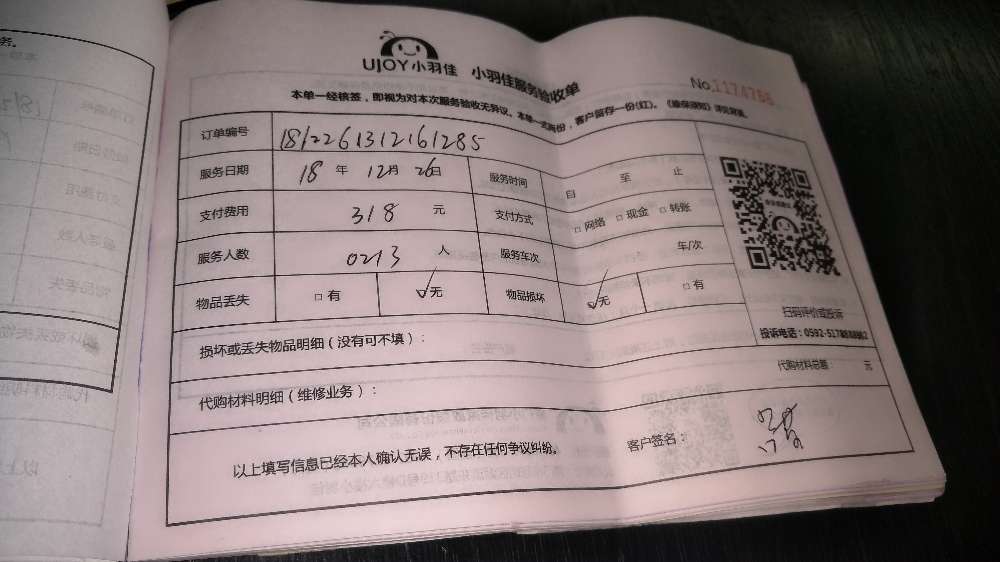 UJOY小羽佳 小羽佳服务验收单
No.1174766
本单一经核签，即视为对本次服务验收无异议。本单一式两份，客户留存一份(红)。
订单编号 1812261312161285
服务日期 18 年 12月 26日 服务时间 自 至 止
支付费用 318 元 支付方式 □网络 □现金 □转账
服务人数 0213 人 服务车次 车/次
物品丢失 □有 ☑无 物品损坏 ☑无 □有
扫码评价或投诉
投诉电话：0592-517
损坏或丢失物品明细（没有可不填）：
代购材料明细（维修业务）：
代购材料总额： 元
以上填写信息已经本人确认无误，不存在任何争议纠纷。
客户签名：